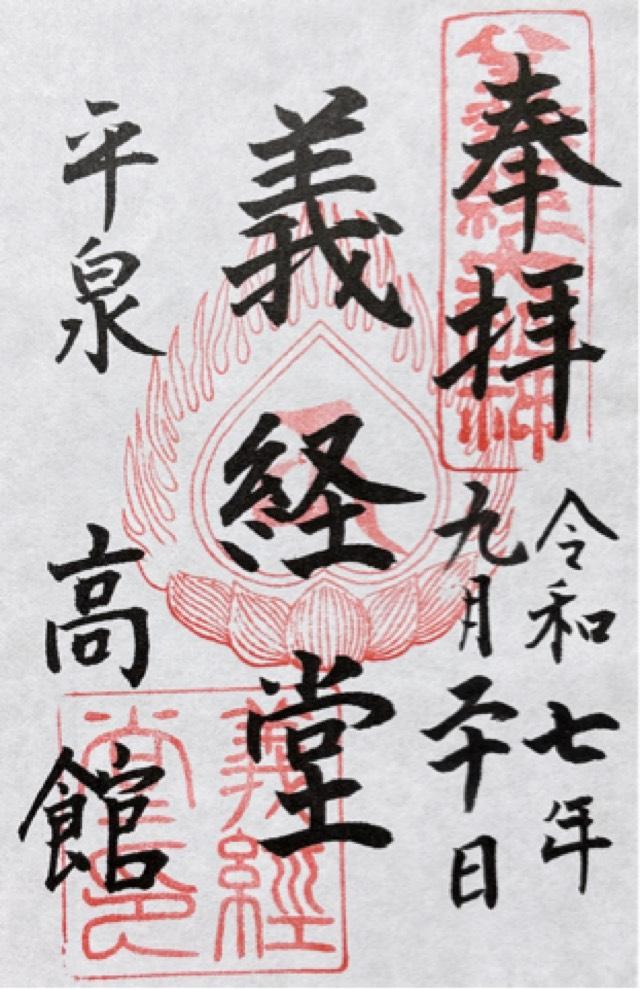 奉拝
令和七年
九月二十日
義経堂
平泉 高館
義經
堂印